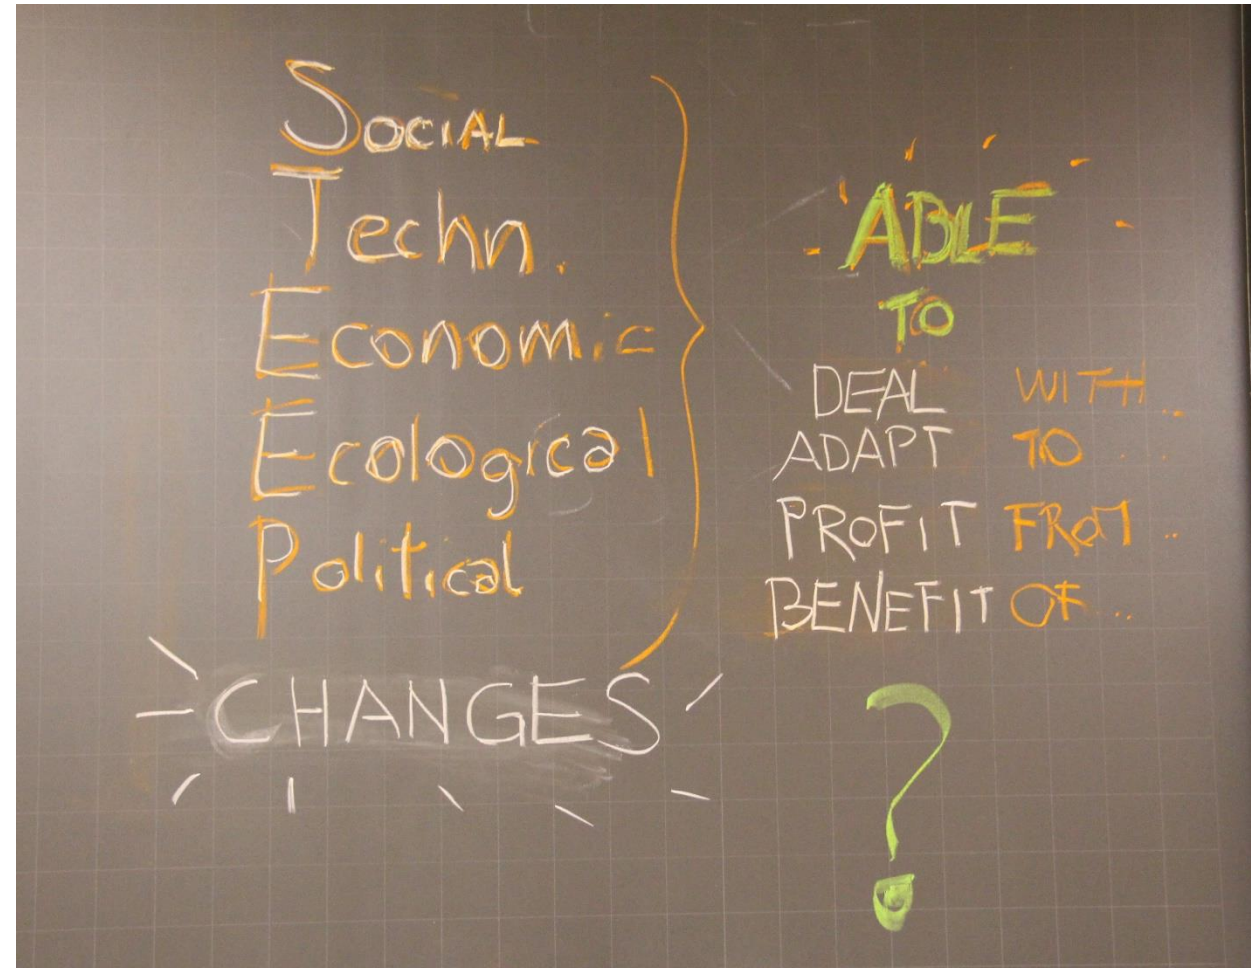 SOCIAL
Techn.
Economic
Ecological
Political
CHANGES
ABLE
TO
DEAL WITH..
ADAPT TO ...
PROFIT FROM ..
BENEFIT OF ...
?